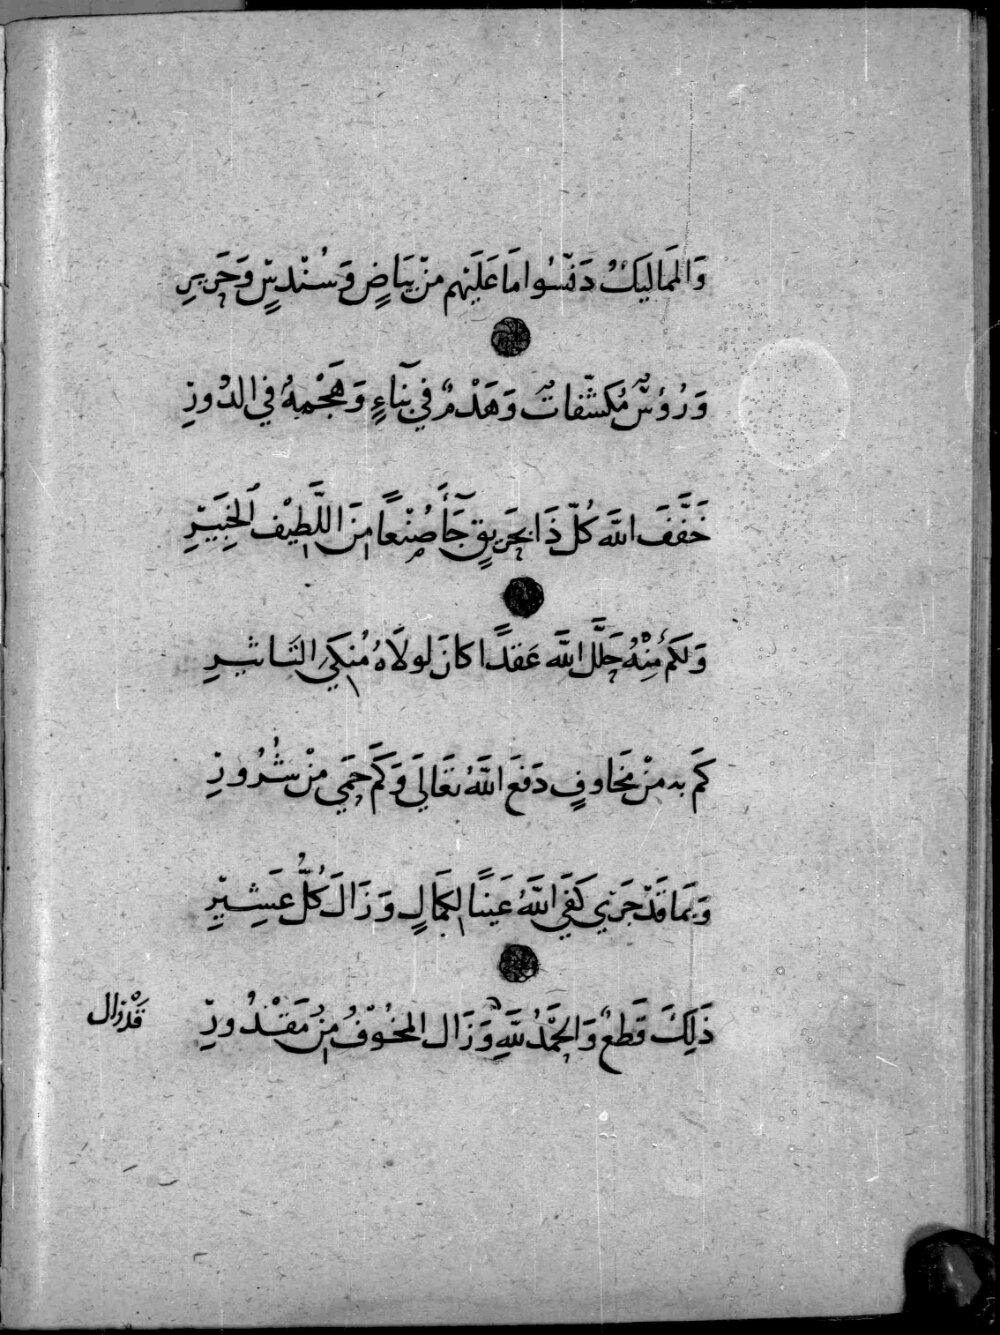 وَالمَمَاليَكُ دَنّسُوا مَا عَلَيْهم منْ بيَاضٍ وَسُنْدسٍ وَحَريرِ
وَرُؤسٌ مُكشّفاتٌ وَهَدْمٌ في بَناءٍ وَهَجْمةٌ في الدوْرِ
خَفَّفَ اللَّه كُلّ ذَا بحَريقٍ جَآ صُنْعاً منَ اللَّطيْف الخَبيْرِ
وَلكَم مِنْهُ حَلَّلَ اللَّه عَقدًا كانَ لولاَهُ مُنكي التَاشيرِ
كَم به منْ مخَاوفٍ دَفعَ اللَّهُ تعَاليَ وَكَم حَمي منْ شُرُورِ
وَبمَا قَدْ جَرَي كَفيَ اللَّهُ عَينًا لكمَالٍ وَزَالَ كُلُّ عَسِيْرِ
ذَلكَ قَطعٌ وَالحَمْدُ للَّهِ وَزَال المخُوْفُ منْ مَقْدُورِ
قَدْ زال